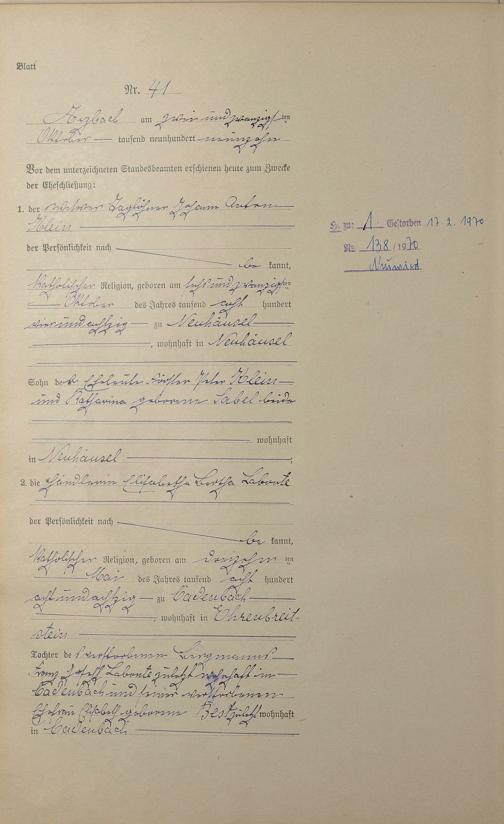 Blatt
Nr. 41
Arzbach am zwei und zwanzigsten
Oktober tausend neunhundert neunzehn
Vor dem unterzeichneten Standesbeamten erschienen heute zum Zwecke
der Eheschließung:
1. der Witwer Taglöhner Johann Anton
Klein
der Persönlichkeit nach
be kannt,
katholischer Religion, geboren am sechs und zwanzigsten
Oktober des Jahres tausend acht hundert
vier und achtzig zu Neuhäusel
, wohnhaft in Neuhäusel
Sohn der Eheleute Peter Klein
und Katharina geborene Sabel beide
wohnhaft
in Neuhäusel
2. die Händlerin Elisabetha Bertha Labonte
der Persönlichkeit nach
be kannt,
katholischer Religion, geboren am dreizehnten
Mai des Jahres tausend acht hundert
acht und achtzig zu Cadenbach
, wohnhaft in Ehrenbreit-
stein
Tochter des verstorbenen Bergmanns
Josef Labonte zuletzt wohnhaft in
Cadenbach und seiner verstorbenen
Ehefrau Elisabeth geborene Best zuletzt wohnhaft
in Cadenbach
Eh. zu: 1 Gestorben 17.2.1970
Nr. 138/1970
Neuwied